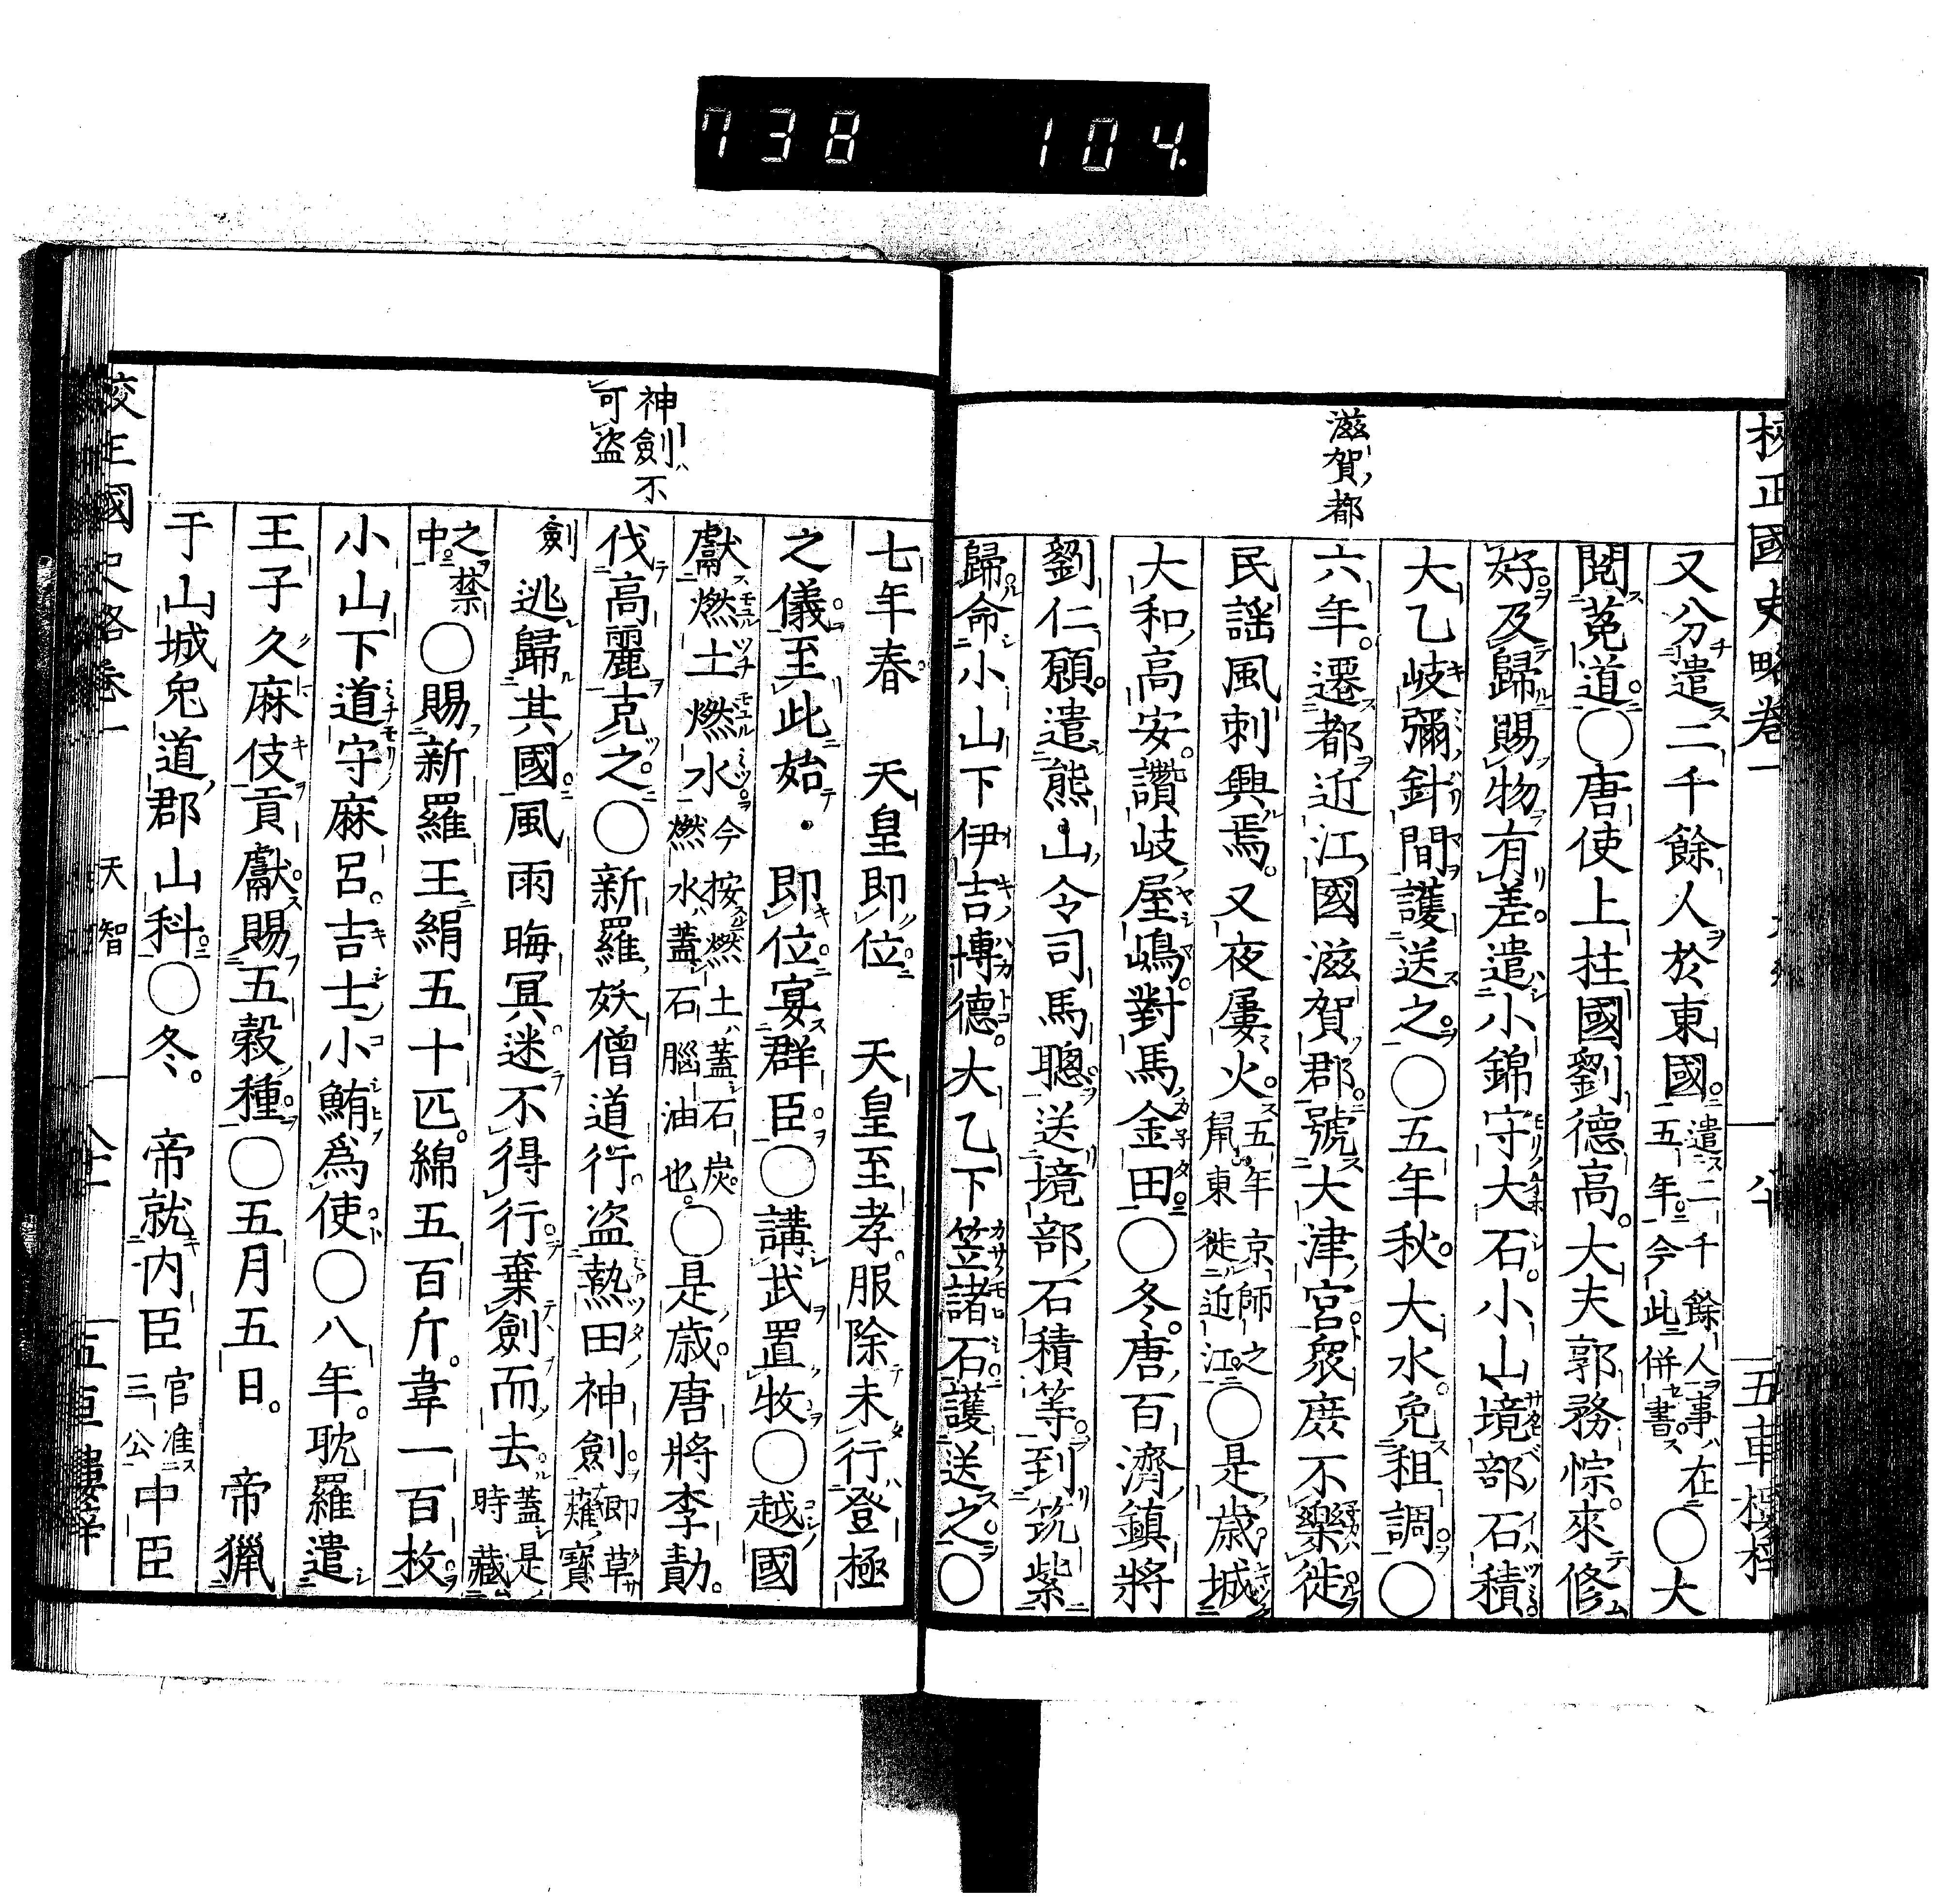 738 104.
校正國史略卷一
八十
五車樓梓
滋賀都
又分遣二千餘人於東國遣二千餘人事在五年今此併書〇大
閲菟道〇唐使上柱國劉德高大夫郭務悰來修
好及歸賜物有差遣小錦守大石小山境部石積
大乙岐彌針間護送之〇五年秋大水免租調〇
六年遷都近江國滋賀郡號大津宮衆庶不樂徙
民謡風刺興焉又夜屢火五年京師之鼠東徙近江〇是歳城
大和高安讚岐屋嶋對馬金田〇冬唐百濟鎮將
劉仁願遣熊山令司馬聰送境部石積等到筑紫
歸命小山下伊吉博德大乙下笠諸石護送之〇
神劍不
可盜
七年春 天皇即位 天皇至孝服除未行登極
之儀至此始即位宴群臣〇講武置牧〇越國
獻燃土燃水今按燃土蓋石炭燃水蓋石腦油也〇是歳唐將李勣
伐高麗克之〇新羅妖僧道行盜熱田神劍即草薙寶
劍逃歸其國風雨晦冥迷不得行棄劍而去蓋是時藏
之禁中〇賜新羅王絹五十匹綿五百斤韋一百枚
小山下道守麻呂吉士小鮪爲使〇八年耽羅遣
王子久麻伎貢獻賜五穀種〇五月五日 帝獵
于山城兔道郡山科〇冬 帝就内臣官准三公中臣
校正國史略卷一
天智
五車樓梓